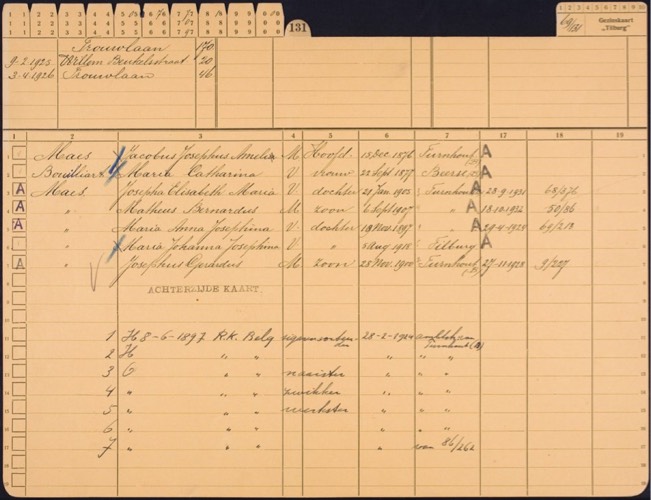 131
69/131
Gezinskaart
"Tilburg"
Trouwlaan 170
9-2-1925 Willem Beukelsstraat 20
3-4-1926 Trouwlaan 46
1 2 3 4 5 6 7 17 18 19
Maes Jacobus Josephus Amelia M Hoofd 15 Dec. 1876 Turnhout A
Maria Catharina V. vrouw 22 Sept. 1877 Beerse A
A Maes Josepha Elisabeth Maria V. dochter 21 Jan. 1903 Turnhout A 28-9-1931 68/276
A " Matheus Bernardus M zoon 6 Sept. 1907 " A 18-10-1932 50/86
A " Maria Anna Josephina V. dochter 18 Nov. 1897 " A 29-4-1925 69/213
" Maria Johanna Josephina V. " 5 Aug 1918 Tilburg A
A " Josephus Gerardus M. zoon 25 Nov. 1900 Turnhout 27-11-1923 9/227
ACHTERZIJDE KAART.
1 H 8-6-1897 R.K. Belg 28-2-1924 Turnhout (B)
2 H " " " " "
3 O " " naaister " " "
4 " " " " " "
5 " " " " " "
6 " " " " " "
7 " " " " van 86/262